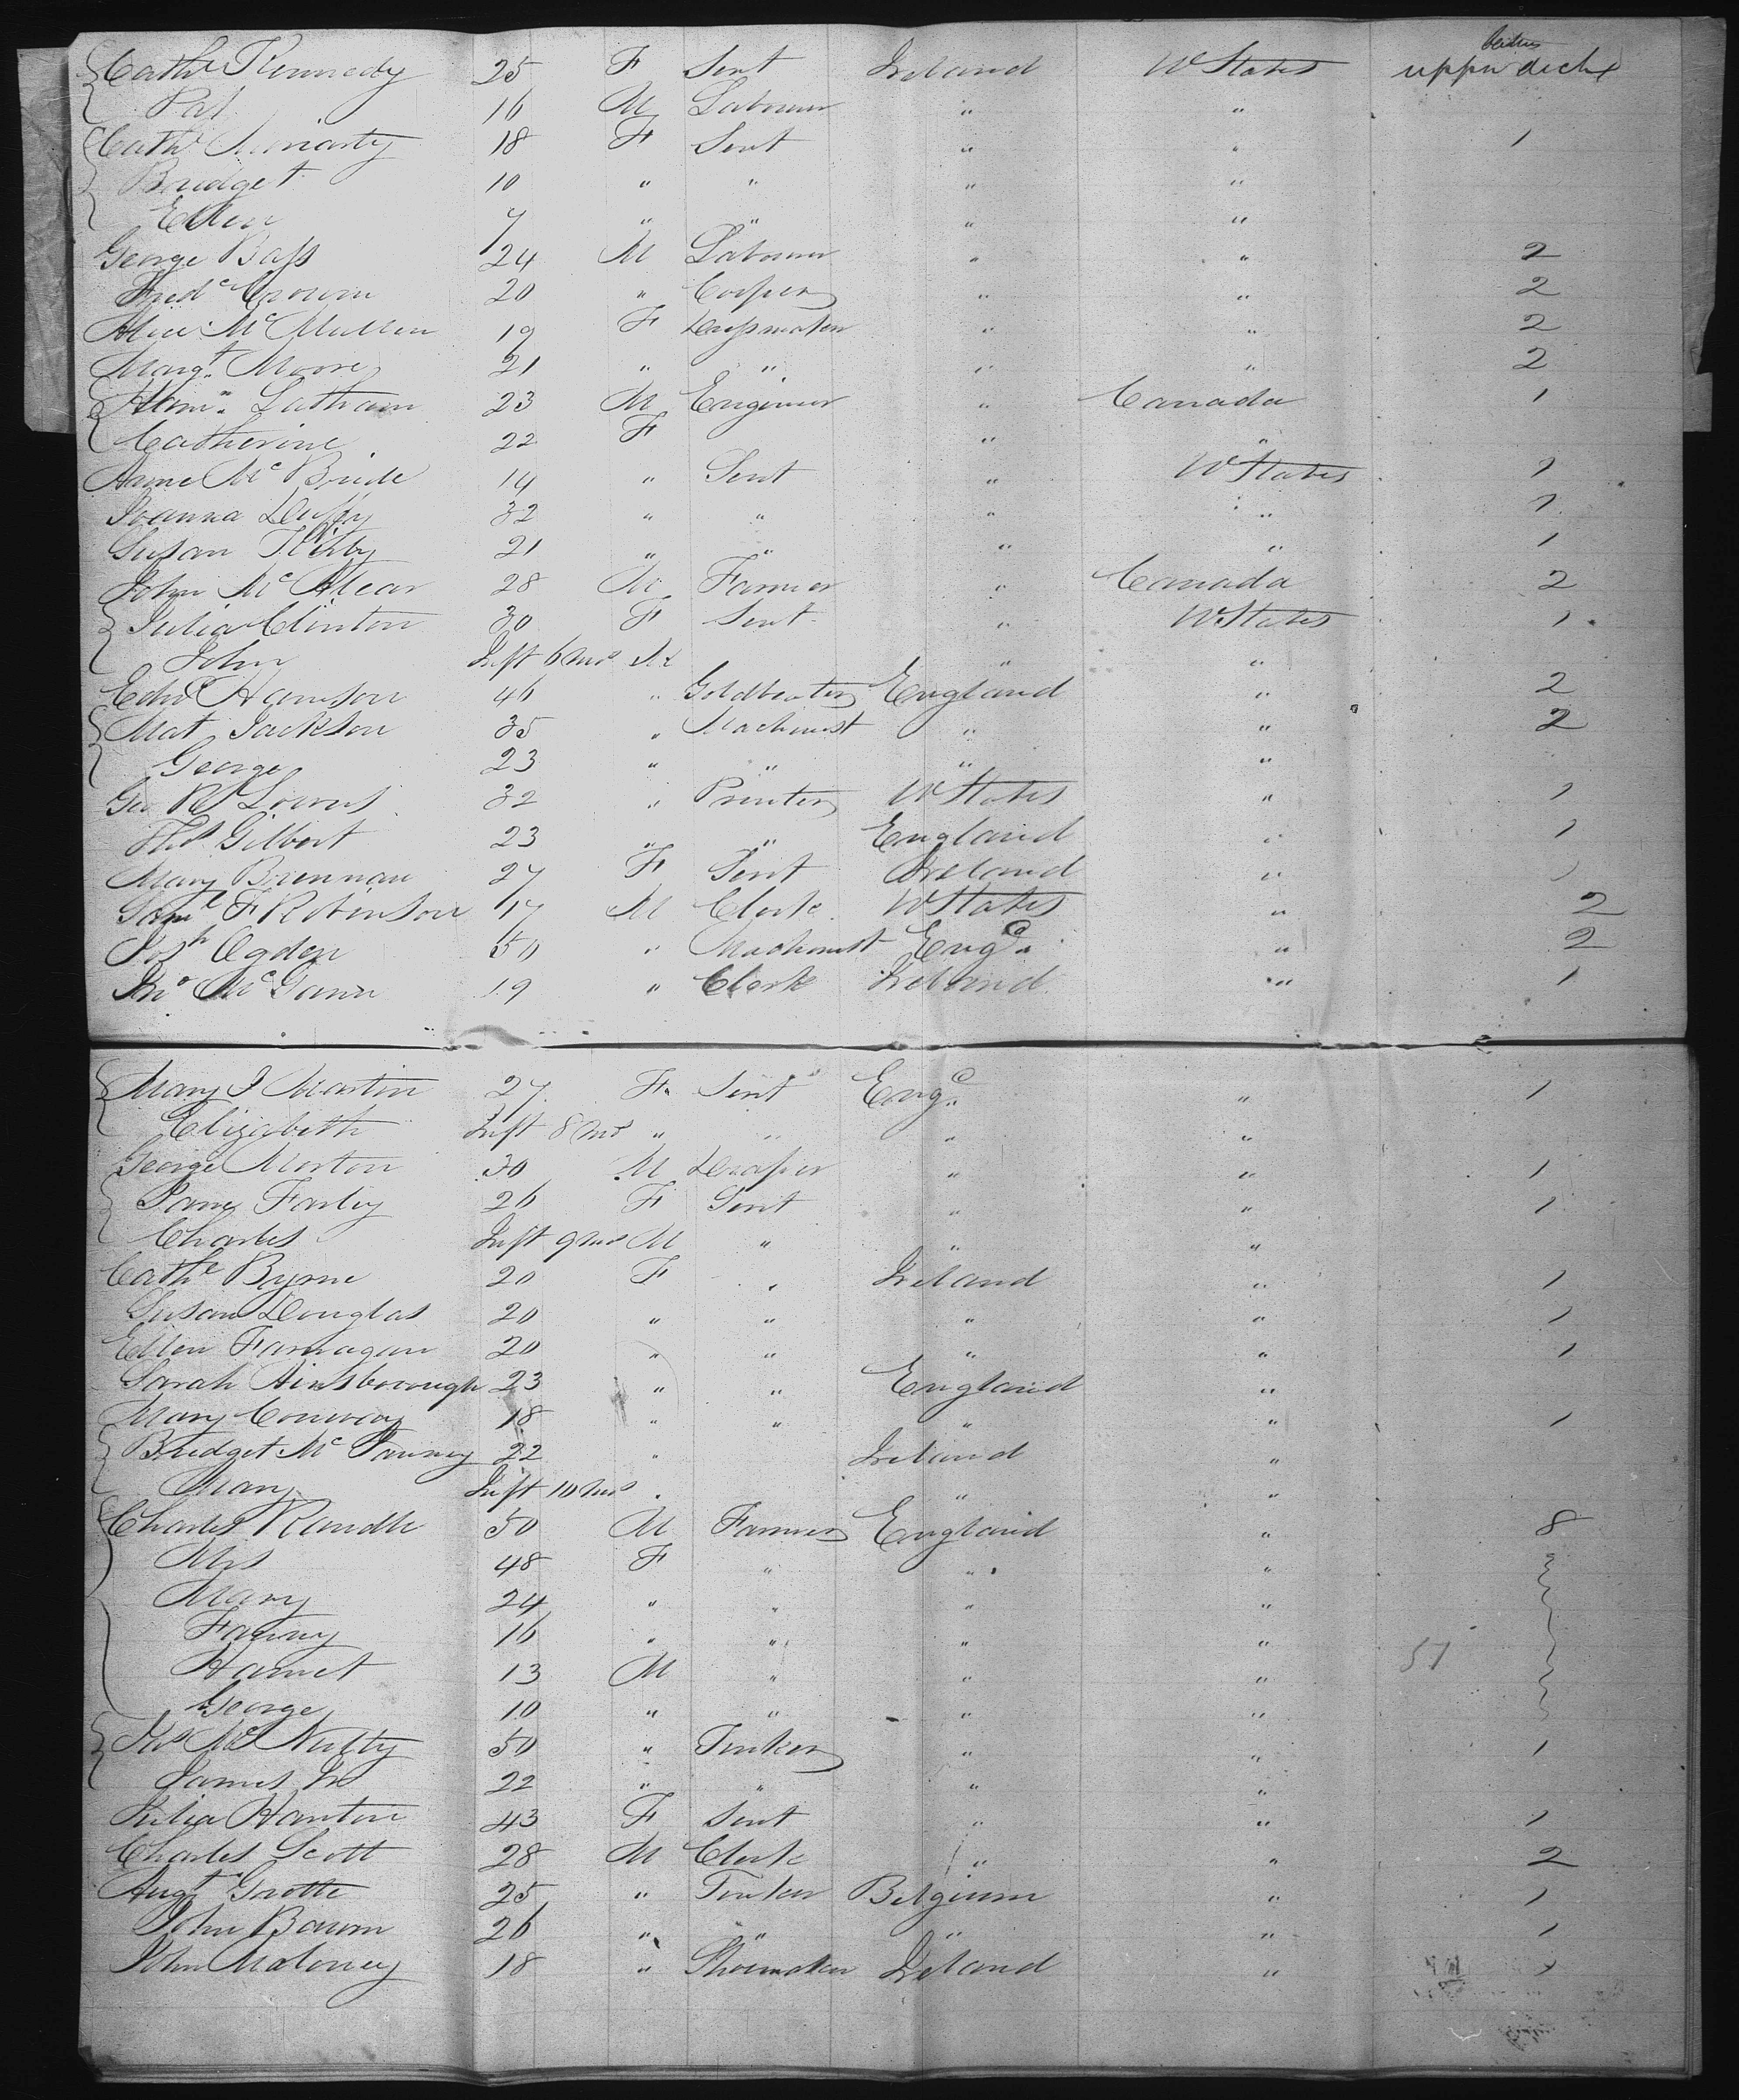 Cathe Kennedy 25 F Sert Ireland U States between upper decks
Pat 16 M Labourer " "
Cathe Moriarty 18 F Sert " " 1
Bridget 10 " " " "
Ellen 7 " " " "
George Bass 24 M Labourer " " 2
Fredc Crown 20 " Cooper " " 2
Alice McMullen 19 F Dressmaker " " 2
Margt Moore 21 " " " " 2
Hamn Latham 23 M Engineer " Canada 1
Catherine 22 F " "
Anne McBride 14 " Sert " U States 1
Joanna Duffy 32 " " " " 1
Susan Kirby 21 " " " " 1
John McAlear 28 M Farmer " Canada 2
Julia Clinton 30 F Sert " U States 1
John Inft 6 mos M " "
Edwd Harrison 46 " Goldbeater England " 2
Mat Jackson 35 " Machinist " " 2
George 23 " " " "
Geo R 32 " Printer U States " 1
Thos Gilbert 23 " " England " 1
Mary Brennan 27 F Sert Ireland " 1
Saml F Robinson 17 M Clerk U States " 2
Josh Ogden 50 " Machinist Engd " 2
Jno McGann 19 " Clerk Ireland " 1
Mary J Martin 27 F Sert Engd " 1
Elizabeth Inft 8 mos " " " "
George Morton 30 M Draper " " 1
Jane Farley 26 F Sert " " 1
Charles Inft 9 mos M " " "
Cathe Byrne 20 F " Ireland " 1
Susan Douglas 20 " " " " 1
Ellen Farnagan 20 " " " " 1
Sarah Ainsborough 23 " " England "
Mary Conway 18 " " " " 1
Bridget McTawney 22 " Ireland "
Mary Inft 10 mos " " "
Charles Randle 50 M Farmer England " 8
Mrs 48 F " " "
Mary 24 " " " "
Fanny 16 " " " "
Harriet 13 M " " " 51
George 10 " " " "
Jas McNulty 50 " Tinker " " 1
James Jr 22 " " " "
Julia Hanton 43 F Sert " " 1
Charles Scott 28 M Clerk " " 2
Augt Grotte 25 " Tinker Belgium " 1
John Baum 26 " " " " 1
John Maloney 18 " Shoemaker Ireland " 1